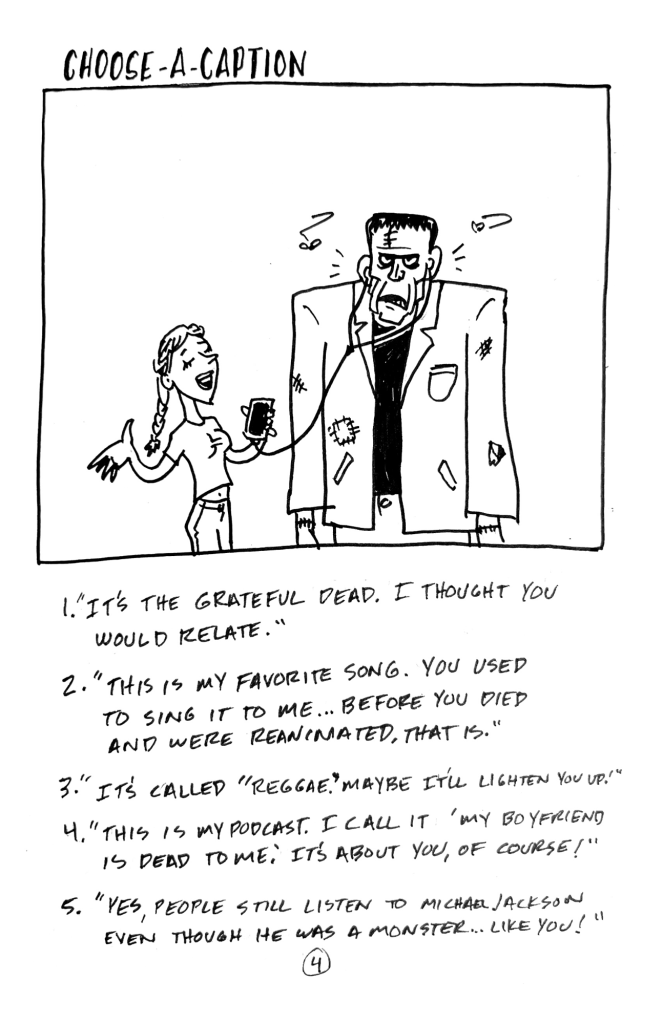 CHOOSE-A-CAPTION
1."IT'S THE GRATEFUL DEAD. I THOUGHT YOU
WOULD RELATE."
2."THIS IS MY FAVORITE SONG. YOU USED
TO SING IT TO ME... BEFORE YOU DIED
AND WERE REANIMATED, THAT IS."
3."IT'S CALLED "REGGAE." MAYBE IT'LL LIGHTEN YOU UP!"
4."THIS IS MY PODCAST. I CALL IT 'MY BOYFRIEND
IS DEAD TO ME.' IT'S ABOUT YOU, OF COURSE!"
5. "YES, PEOPLE STILL LISTEN TO MICHAEL JACKSON
EVEN THOUGH HE WAS A MONSTER... LIKE YOU!"
4